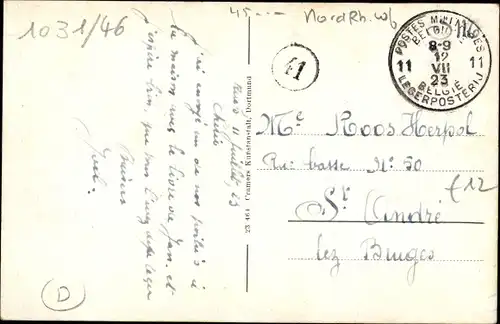 1031/46
45.--
NordRh. Wf
116
POSTES MILITAIRES
BELGIQUE
8-9
12
11 VII 11
23
BELGIË
LEGERPOSTERIJ
41
11 juillet 23
Chérie
J'ai envoyé un de nos poilus à
la maison avec le livre de Jean, et
j'espère bien que vous
Baisers
23 464 Cramers Kunstanstalt, Dortmund
Me Roos-Herpol
Rue basse No 50
St André
lez Bruges
£12
D